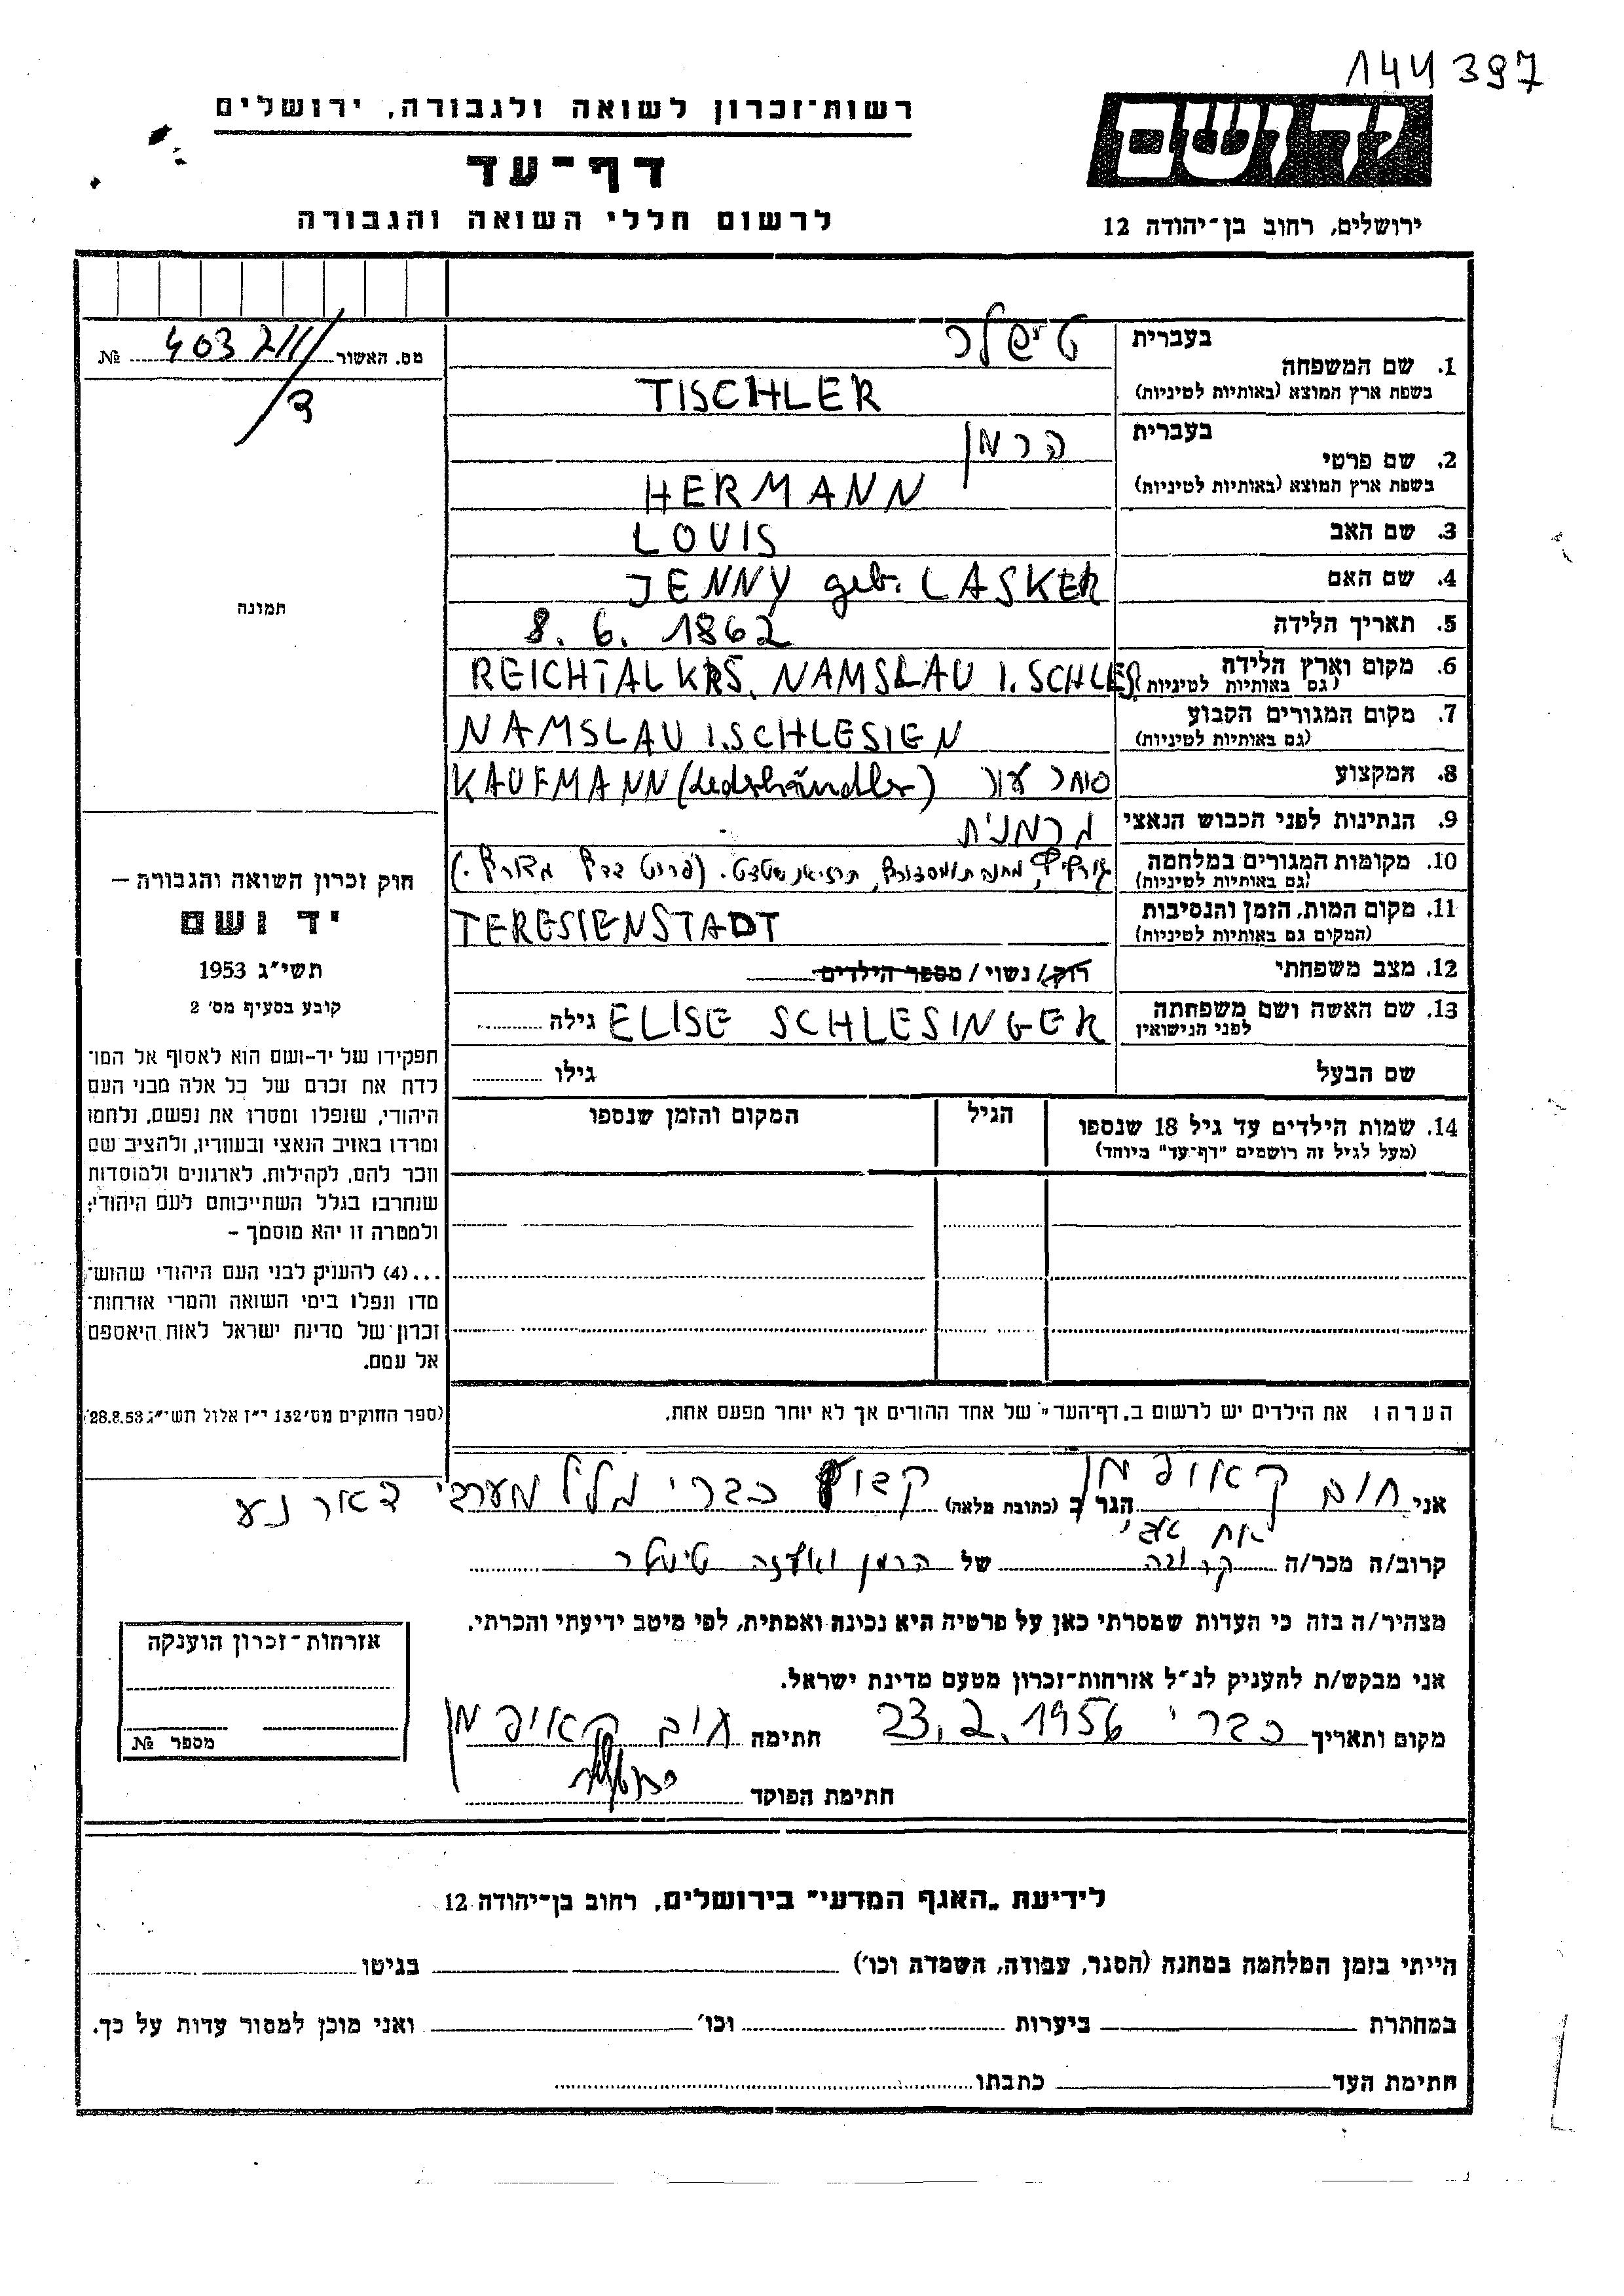 144397
רשות־זכרון לשואה ולגבורה, ירושלים
יד ושם
דף־עד
לרשום חללי השואה והגבורה
ירושלים, רחוב בן־יהודה 12
מס. האשור 403 211/ №
1. שם המשפחה
בעברית טישלר
בשפת ארץ המוצא (באותיות לטיניות) TISCHLER
2. שם פרטי
בעברית הרמן
בשפת ארץ המוצא (באותיות לטיניות) HERMANN
3. שם האב LOUIS
4. שם האם JENNY geb. LASKER
5. תאריך הלידה 8. 6. 1862
6. מקום וארץ הלידה REICHTAL KRS. NAMSLAU I. SCHLES
(גם באותיות לטיניות)
7. מקום המגורים הקבוע NAMSLAU I. SCHLESIEN
(גם באותיות לטיניות)
8. המקצוע KAUFMANN (Lederhändler) סוחר עור
9. הנתינות לפני הכבוש הנאצי גרמנית
10. מקומות המגורים במלחמה
(גם באותיות לטיניות)
11. מקום המות, הזמן והנסיבות TERESIENSTADT
(המקום גם באותיות לטיניות)
12. מצב משפחתי רוק/ נשוי / מספר הילדים
13. שם האשה ושם משפחתה ELISE SCHLESINGER גילה
לפני הנישואין
שם הבעל גילו
14. שמות הילדים עד גיל 18 שנספו הגיל המקום והזמן שנספו
(מעל לגיל זה רושמים "דף־עד" מיוחד)
הערה: את הילדים יש לרשום ב„דף־העד" של אחד ההורים אך לא יותר מפעם אחת.
תמונה
חוק זכרון השואה והגבורה –
יד ושם
תשי"ג 1953
קובע בסעיף מס' 2
תפקידו של יד-ושם הוא לאסוף אל המו־
לדת את זכרם של כל אלה מבני העם
היהודי, שנפלו ומסרו את נפשם, נלחמו
ומרדו באויב הנאצי ובעוזריו, ולהציב שם
וזכר להם, לקהילות, לארגונים ולמוסדות
שנחרבו בגלל השתייכותם לעם היהודי;
ולמטרה זו יהא מוסמך –
...(4) להעניק לבני העם היהודי שהוש־
מדו ונפלו בימי השואה והמרי אזרחות־
זכרון של מדינת ישראל לאות היאספם
אל עמם.
(ספר החוקים מס' 132 י"ז אלול תשי"ג 28.8.53)
אני חום קאופמן הגר ב (כתובת מלאה) קבוץ כברי גליל מערבי דאר נע
קרוב/ה מכר/ה קרובה של הרמן ואליזה טישלר
מצהיר/ה בזה כי העדות שמסרתי כאן על פרטיה היא נכונה ואמתית, לפי מיטב ידיעתי והכרתי.
אני מבקש/ת להעניק לנ"ל אזרחות־זכרון מטעם מדינת ישראל.
מקום ותאריך כברי 23.2.1956 חתימה חום קאופמן
חתימת הפוקד
אזרחות־זכרון הוענקה
מספר №
לידיעת „האגף המדעי" בירושלים, רחוב בן־יהודה 12
הייתי בזמן המלחמה במחנה (הסגר, עבודה, השמדה וכו') בגיטו
במחתרת ביערות וכו' ואני מוכן למסור עדות על כך.
חתימת העד כתבתו